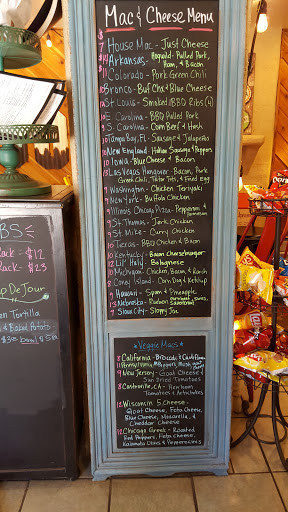 Mac & Cheese Menu
$ 7 House Mac - Just Cheese
14 Arkansas - Hogwild - Pulled Pork, Ham, & Bacon
11 Colorado - Pork Green Chili
10 Bronco - Buf Chx & Blue Cheese
12 St Louis - Smoked BBQ Ribs (4)
10 E. Carolina - BBQ Pulled Pork
9 S. Carolina - Corn Beef & Hash
10 Tampa Bay, FL - Sausage & Jalapeño
10 New England - Italian Sausage & Peppers
10 Iowa - Blue Cheese & Bacon
13 Las Vegas Hangover - Bacon, Pork Green Chili, Tater Tots, & Fried Egg
9 Washington - Chicken Teriyaki
9 New York - Buffalo Chicken
9 Illinois Chicago Pizza - Pepperoni &
9 St Thomas - Jerk Chicken
9 St Mike - Curry Chicken
10 Texas - BBQ Chicken & Bacon
10 Kentucky - Bacon Cheeseburger
10 Lil' Italy - Bolognese
10 Michigan - Chicken, Bacon, & Ranch
8 Coney Island - Corn Dog & Ketchup
9 Hawaii - Spam & Pineapple
13 Nebraska - Reuben
9 Sioux City - Sloppy Joe
* Veggie Macs *
8 California - Broccoli &
11 Pennsylvania
9 New Jersey - Goat Cheese & Sun Dried Tomatoes
8 Castroville, CA - Heirloom Tomatoes & Artichokes
12 Wisconsin 5 Cheese - Goat Cheese, Feta Cheese, Blue Cheese, Mozzarella, & Cheddar Cheese
12 Chicago Greek - Roasted Red Peppers, Feta Cheese, Kalamata Olives & Pepperoncini
BS
Rack - $12
Rack - $23
p De Jour
en Tortilla
& Baked Potato
bowl